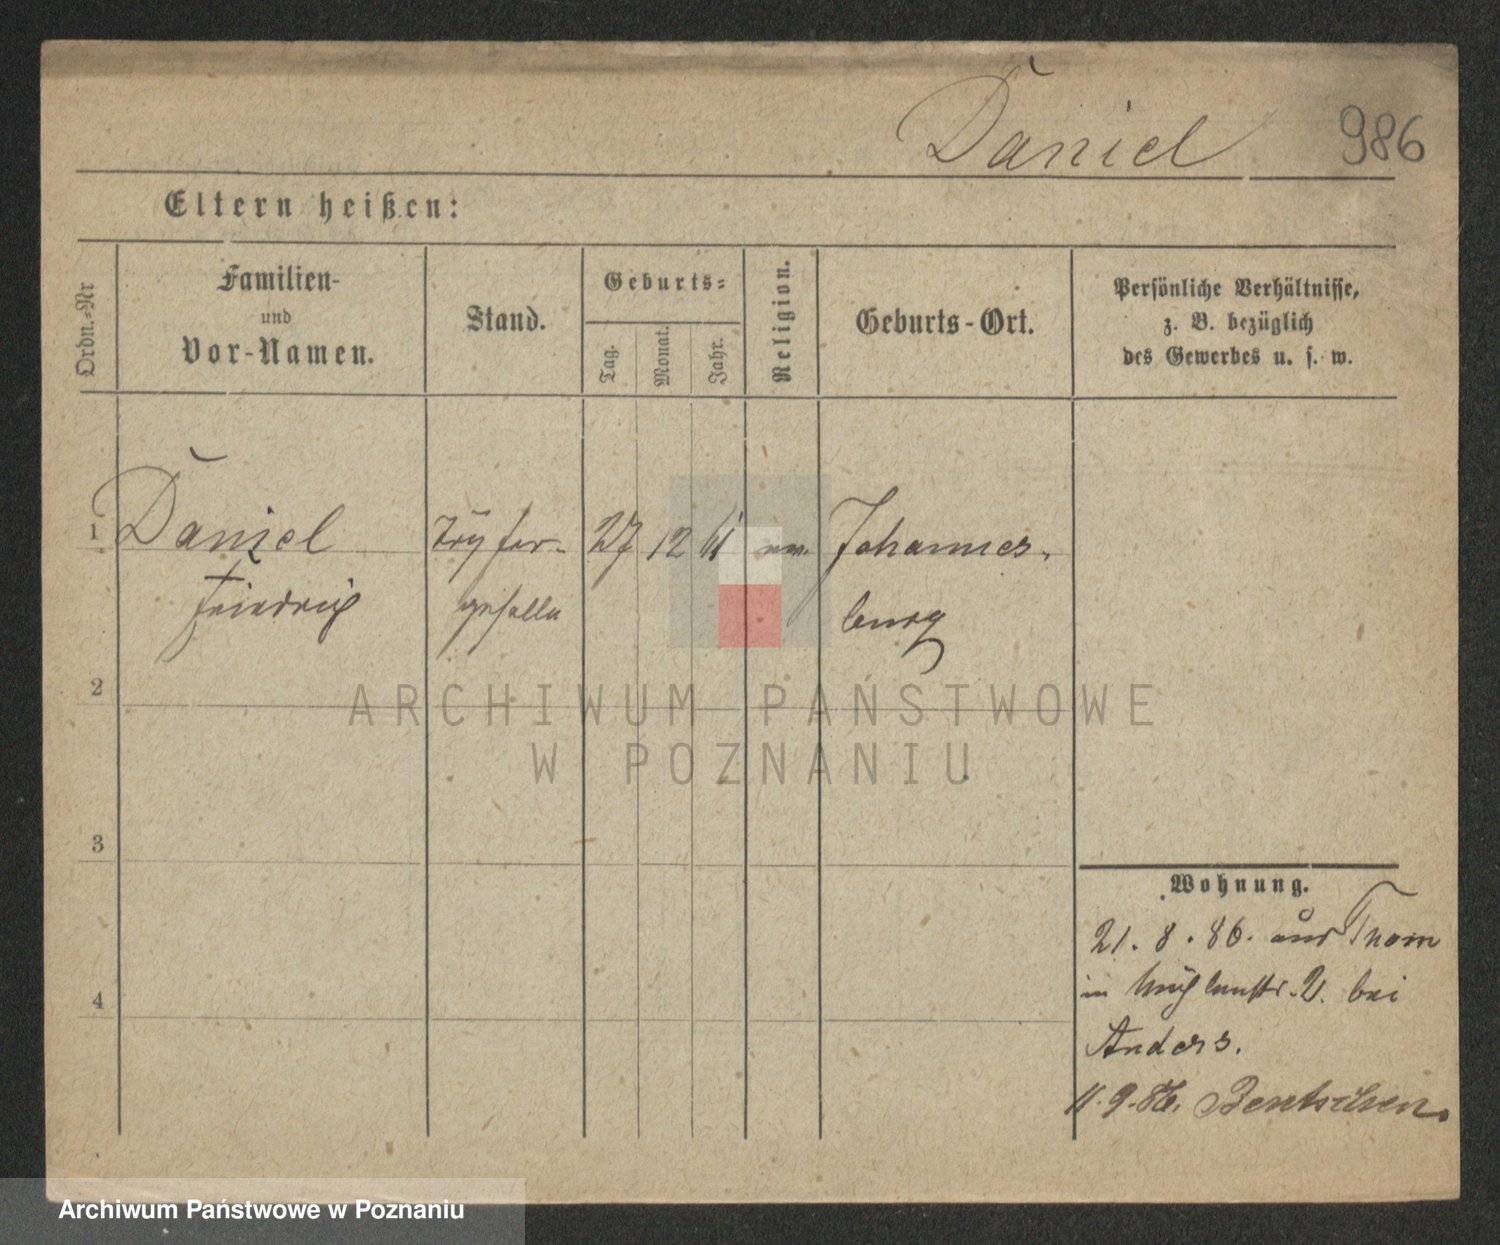 Daniel 986
Eltern heißen:
Ordn.=Nr
Familien-
und
Vor-Namen.
Stand.
Geburts=
Tag.
Monat.
Jahr.
Religion.
Geburts-Ort.
Persönliche Verhältnisse,
z. B. bezüglich
des Gewerbes u. s. w.
1 Daniel Töpfer- 27 12 ev. Johannes-
Friedrich geselle burg
2
ARCHIWUM PAŃSTWOWE
W POZNANIU
3
Wohnung.
21. 8. 86. aus Thorn
in Mühlenstr. 2. bei
4
Anders.
11. 9. 86. Bentschen.
Archiwum Państwowe w Poznaniu